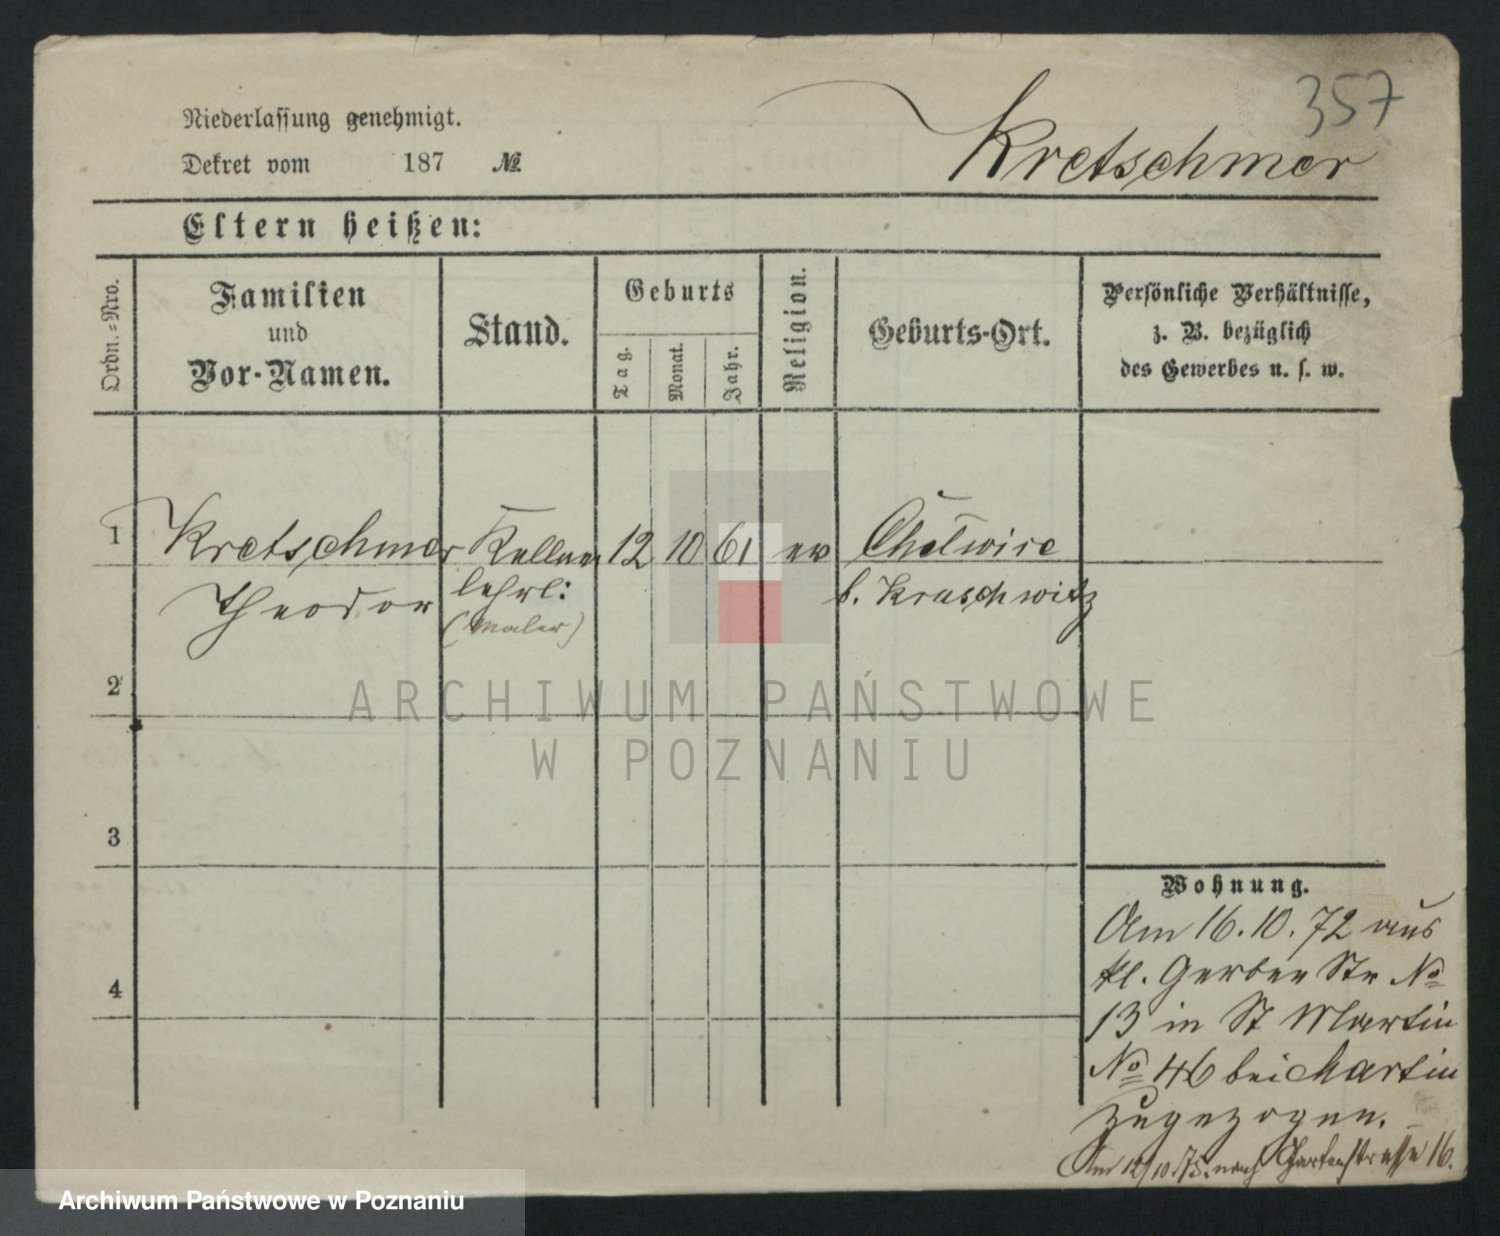 357
Niederlassung genehmigt.
Kretschmer
Dekret vom 187 №
Eltern heißen:
Ordn.-Nro.
Familien
und
Vor-Namen.
Stand.
Geburts
Tag.
Monat.
Jahr.
Religion.
Geburts-Ort.
Persönliche Verhältnisse,
z. B. bezüglich
des Gewerbes u. s. w.
1 Kretschmer Kellner 12 10 61 ev
Theodor lehrl: b. Kruschwitz
(Maler)
2
3
4
Wohnung.
Am 16.10.72 aus
kl. Gerber Str No
13 in St Martin
No 46 bei Martin
zugezogen.
Am 12/10.75. nach Gartenstrasse 16.
ARCHIWUM PAŃSTWOWE
W POZNANIU
Archiwum Państwowe w Poznaniu